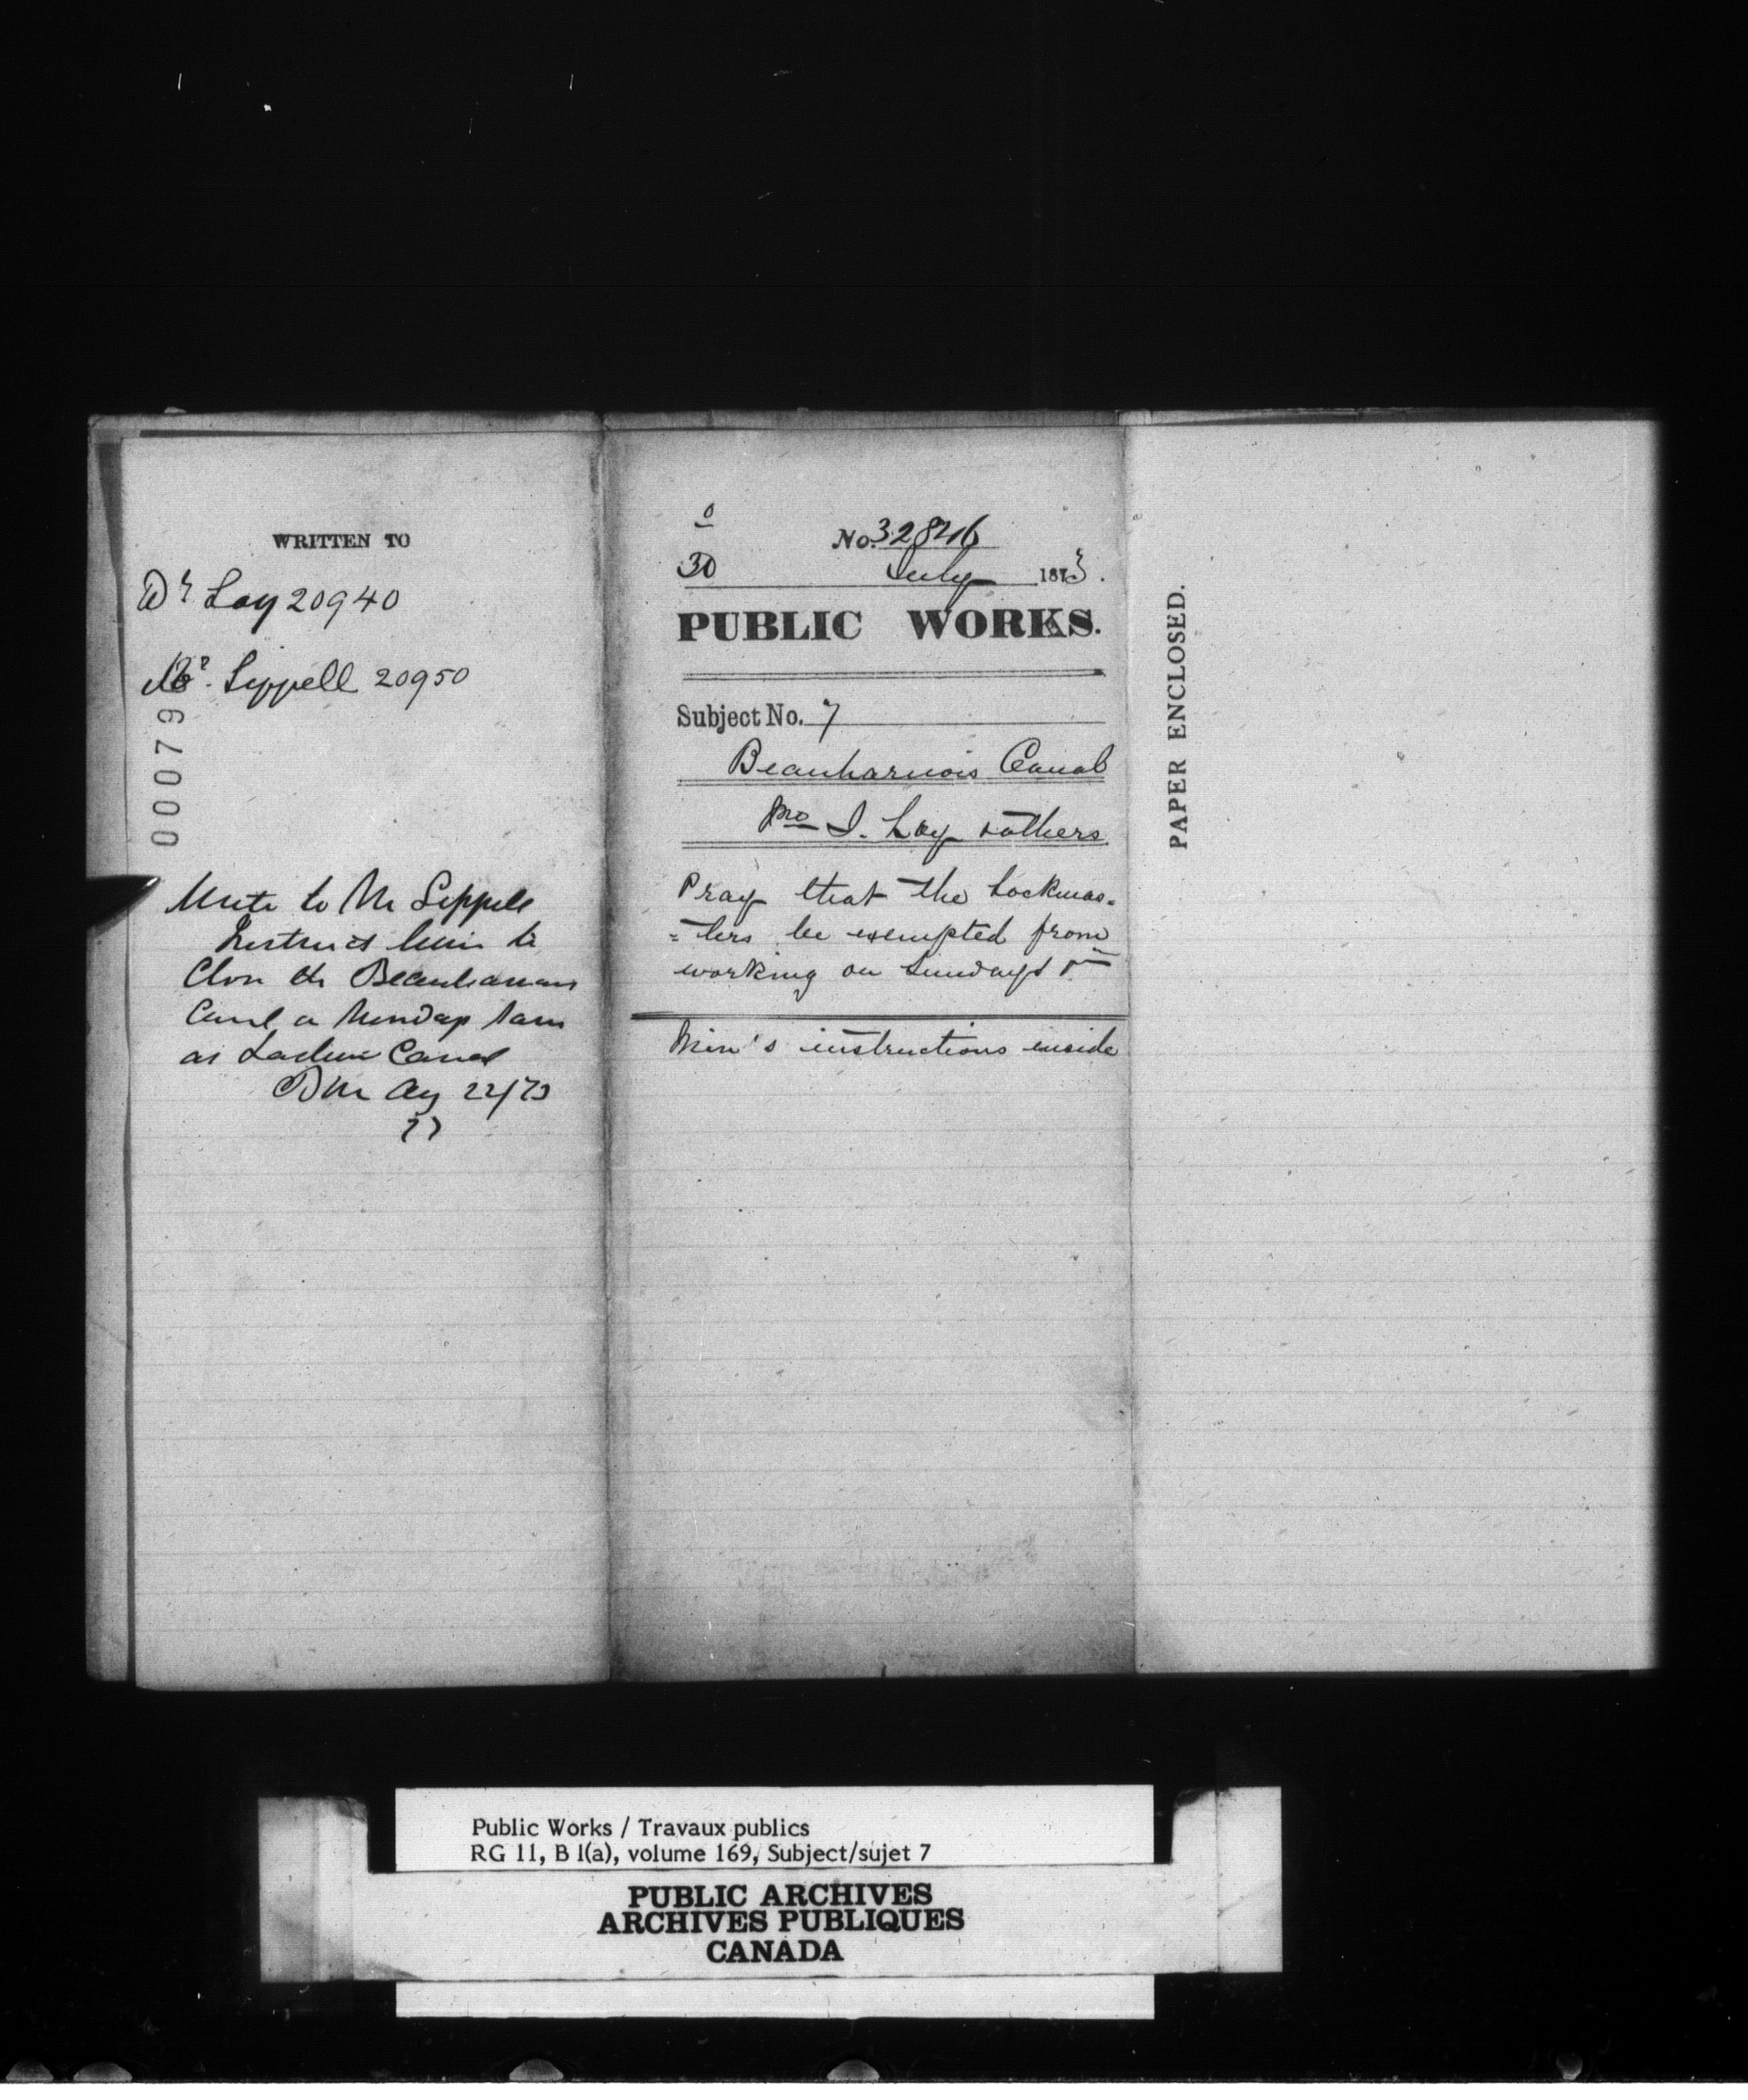 WRITTEN TO
Dr Loy 20940
Mr. Sippell 20950
00079
Write to Mr Sippell
Instruct him to
Close the Beauharnois
Canal on Sundays same
as Lachine Canal
Aug 22/73
0
No. 32846
30 July 1873.
PUBLIC WORKS.
Subject No. 7
Beauharnois Canal
I. Loy & others
Pray that the Lockmas-
=ters be exempted from
working on Sundays
Min's instructions inside
PAPER ENCLOSED.
Public Works / Travaux publics
RG 11, B 1(a), volume 169, Subject/sujet 7
PUBLIC ARCHIVES
ARCHIVES PUBLIQUES
CANADA